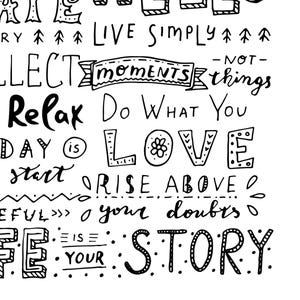 LIVE SIMPLY
LLECT MOMENTS -NOT- things
Relax DO WHAT YOU
DAY is LOVE
start RISE ABOVE
EFUL>>> your doubts
FE IS YOUR STORY